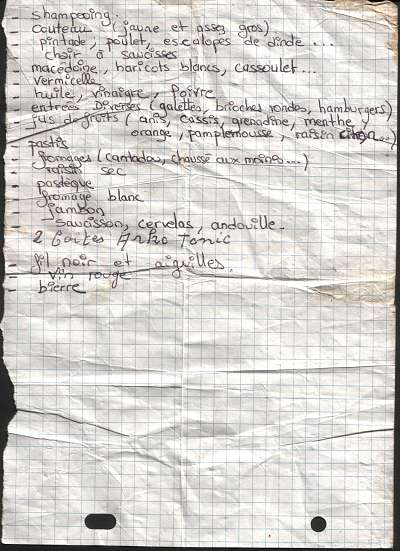 - shampooing.
- couteau (jaune et assez gros)
- pintade, poulet, escalopes de dinde...
- chair à saucisses
- macédoine, haricots blancs, cassoulet...
- vermicelle
- huile, vinaigre, poivre
- entrées Diverses (galettes, brioches rondes, hamburgers)
- jus de fruits (anis, cassis, grenadine, menthe,
orange, pamplemousse, raisin citron...)
- pastis
- fromages (cantadou, chaussé aux moines...)
- raisin sec
- pastèque
- fromage blanc
- jambon
- saucisson, cervelas, andouille.
- 2 boites Tonic
- fil noir et aiguilles.
- vin rouge
- bierre